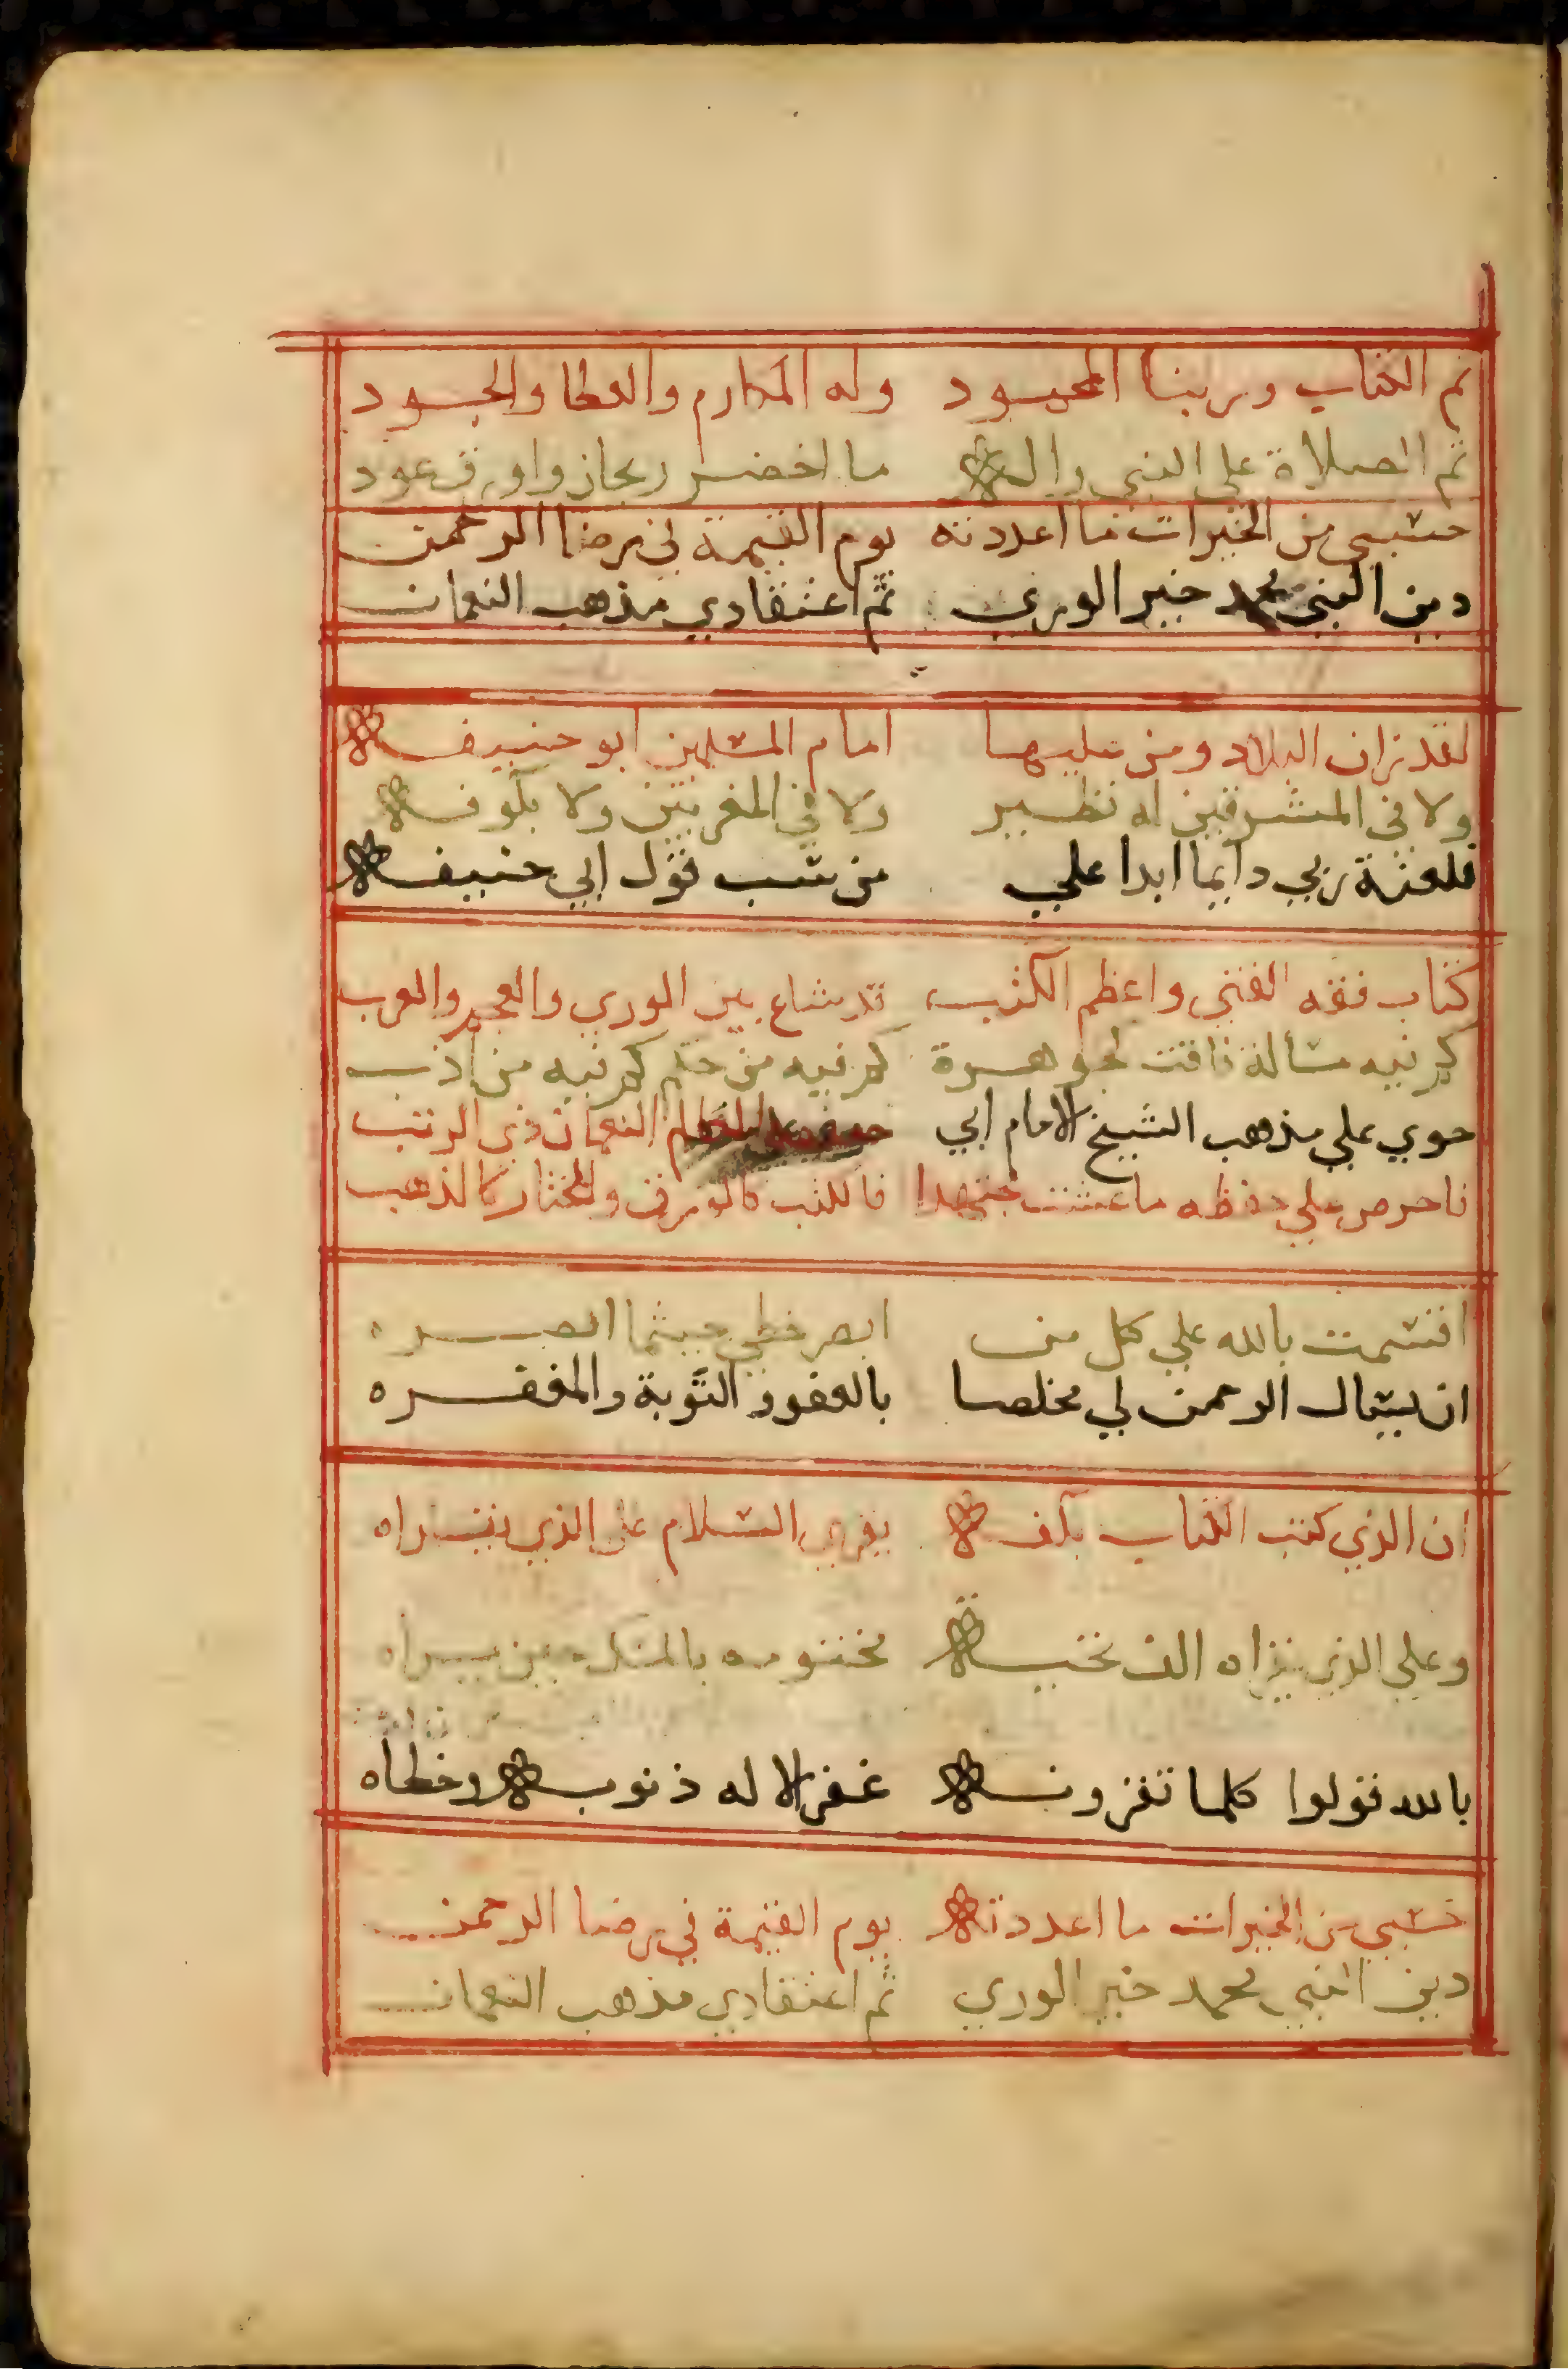 تم الكتاب وربنا المحمود وله المكارم والعطا والجود
ثم الصلاة علي النبي واله ما اخضر ريحان واورق عود
حسبي من الخيرات ما اعددته يوم القيمة في رضا الرحمن
دين النبي محمد خير الوري ثم اعتقادي مذهب النعمان
لقد زان البلاد ومن عليها امام المسلمين ابو حنيفه
ولا في المشرقين له نظير ولا في المغربين ولا بكوفه
فلعنة ربي دايما ابدا علي من سب قول ابي حنيفه
كتاب فقه الفتي واعظم الكتب قد شاع بين الوري والعجم والعرب
كم فيه مسالة فاقت لجوهرة كم فيه من حكم كم فيه من ادب
حوي علي مذهب الشيخ الامام ابي النعمان ذي الرتب
فاحرص علي حفظه ما عشت مجتهدا فالكتب كالورق والمختار كالذهب
اقسمت بالله علي كل من ابصر خطي حيثما ابصره
ان يسال الرحمن لي مخلصا بالعفو والتوبة والمغفره
ان الذي كتب الكتاب بكفه يقري السلام علي الذي يقراه
وعلي الذي يقراه الف تحية مختومه بالمسك حين يراه
بالله قولوا كلما تقرونه غفر الاله ذنوبه وخطاه
حسبي من الخيرات ما اعددته يوم القيمة في رضا الرحمن
دين النبي محمد خير الوري ثم اعتقادي مذهب النعمان